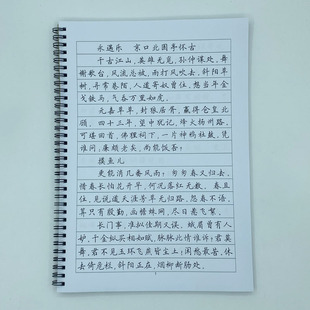 永遇乐 京口北固亭怀古
千古江山，英雄无觅，孙仲谋处。舞
榭歌台，风流总被，雨打风吹去。斜阳草
树，寻常巷陌，人道寄奴曾住。想当年金
戈铁马，气吞万里如虎。
元嘉草草，封狼居胥，赢得仓皇北
顾。四十三年，望中犹记，烽火扬州路。
可堪回首，佛狸祠下，一片神鸦社鼓。凭
谁问，廉颇老矣，尚能饭否？
摸鱼儿
更能消几番风雨？匆匆春又归去。
惜春长怕花开早，何况落红无数。春且
住，见说道天涯芳草无归路。怨春不语，
算只有殷勤，画檐蛛网，尽日惹飞絮。
长门事，准拟佳期又误，蛾眉曾有人
妒，千金纵买相如赋，脉脉此情谁诉；君莫
舞，君不见玉环飞燕皆尘土；闲愁最苦，休
去倚危栏，斜阳正在，烟柳断肠处。
1